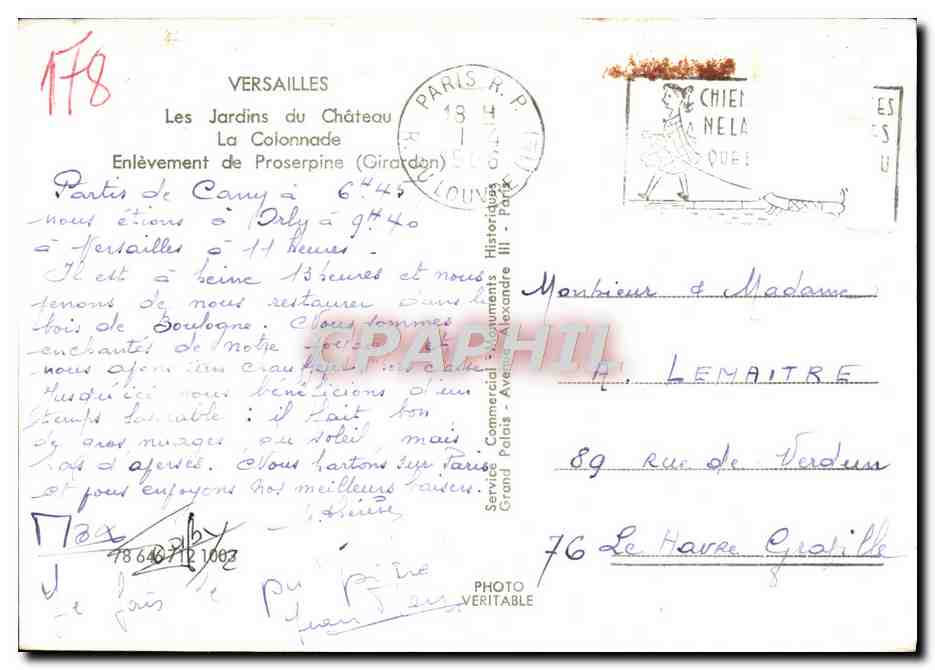 178
VERSAILLES
Les Jardins du Château
La Colonnade
Enlèvement de Proserpine (Girardon)
PARIS R. P.
18 H
R. DU LOUVRE
CHIEN
NE LA
QUE
ES
S
U
Partis de Cany à 6H45
nous étions à Orly à 9H40
à Versailles à 11 heures.
Il est à peine 13 heures et nous
venons de nous restaurer dans le
bois de Boulogne. Nous sommes
enchantés de notre et
nous avons un
Jusqu'ici nous bénéficions d'un
temps : il fait bon
de gros nuages au soleil mais
pas d'averses. Nous partons sur Paris
et vous envoyons nos meilleurs baisers.
Thérèse
Max
78 646 712 1003
Je fais le
Jean
Service Commercial - Monuments Historiques
Grand Palais - Avenue Alexandre III - Paris
CPAPHIL
Monsieur & Madame
A. LEMAITRE
89 rue de Verdun
76 Le Havre Graville
PHOTO
VERITABLE